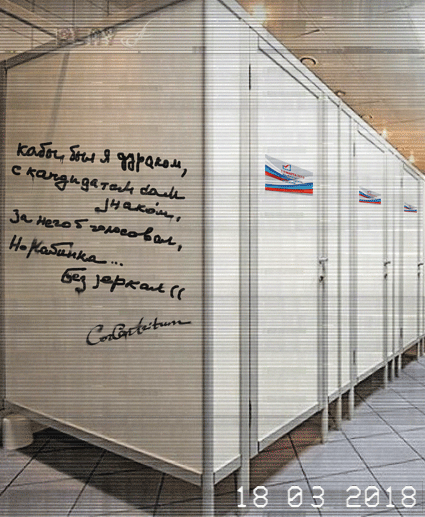 кабы был я дураком,
с кандидатом сам
знаком,
за него б голосовал,
Но кабинка...
Без зеркал ((
18 03 2018